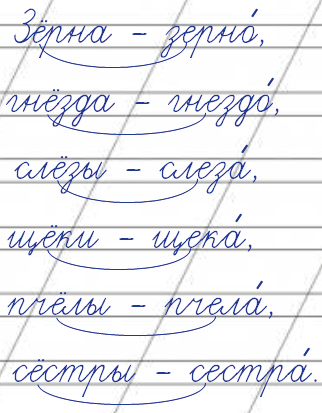 Зёрна – зерно́,
гнёзда – гнездо́,
слёзы – слеза́,
щёки – щека́,
пчёлы – пчела́,
сёстры – сестра́.